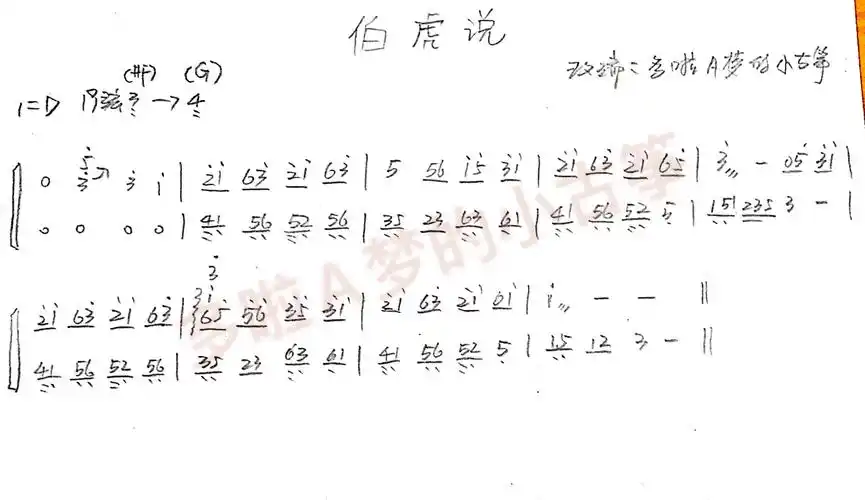 伯虎说
(#F) (G)
1=D 19弦3 → 4
改编：多啦A梦的小古筝
0 5 3 3 1 | 21 63 21 63 | 5 56 15 31 | 21 63 21 65 | 3 - 05 31 |
0 0 0 0 | 41 56 52 56 | 35 23 63 61 | 41 56 52 5 | 151 235 3 - |
21 63 21 63 | 3 1 65 56 35 31 | 21 63 21 01 | 1 - - ||
41 56 52 56 | 35 23 63 61 | 41 56 52 5 | 15 12 3 - ||
多啦A梦的小古筝